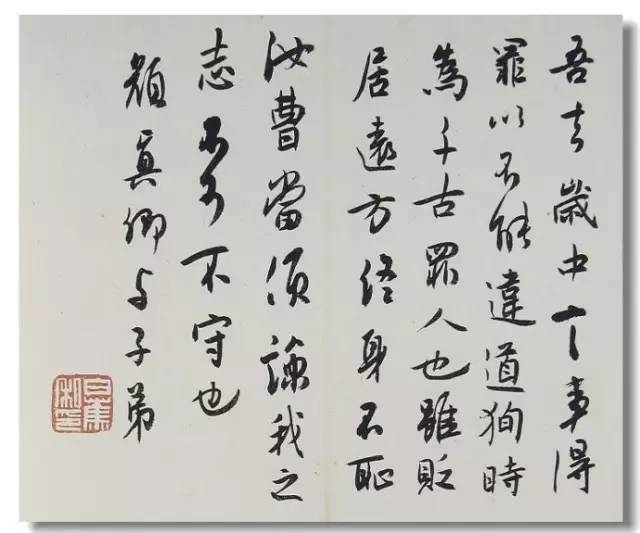 吾去歲中言事得
罪以不能違道狥時
為千古罪人也雖貶
居遠方終身不恥
汝曹當須我之
志不可不守也
顏真卿与子弟
白蕉私印